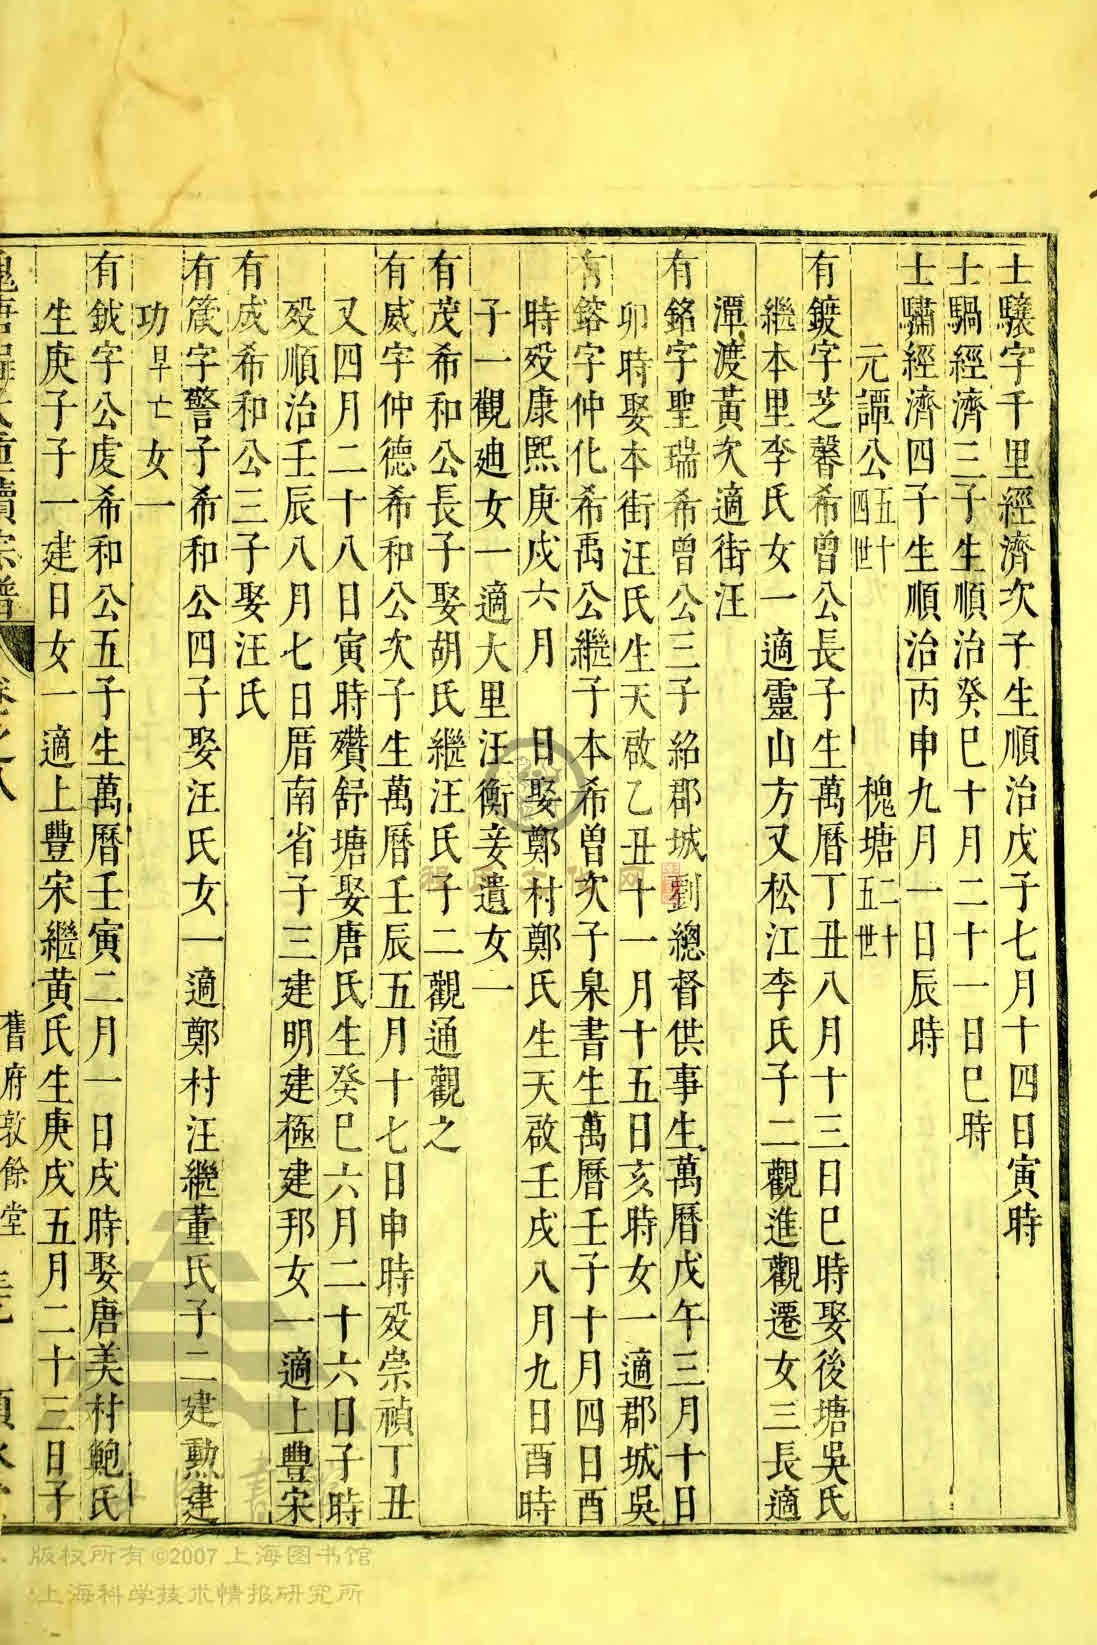 士驤字千里經濟次子生順治戊子七月十四日寅時
士騧經濟三子生順治癸巳十月二十一日巳時
士驌經濟四子生順治丙申九月一日辰時
元譚公五十四世 槐塘二十五世
有鍍字芝馨希曾公長子生萬曆丁丑八月十三日巳時娶後塘吳氏
繼本里李氏女一適靈山方又松江李氏子二觀進觀遷女三長適
潭渡黃次適街汪
有銘字聖瑞希曾公三子紹郡城劉總督供事生萬曆戊午三月十日
卯時娶本街汪氏生天啟乙丑十一月十五日亥時女一適郡城吳
有鎔字仲化希禹公繼子本希曾次子臬書生萬曆壬子十月四日酉
時歿康熙庚戌六月 日娶鄭村鄭氏生天啟壬戌八月九日酉時
子一觀迪女一適大里汪衡妾遺女一
有茂希和公長子娶胡氏繼汪氏子二觀通觀之
有威字仲德希和公次子生萬曆壬辰五月十七日申時歿崇禎丁丑
又四月二十八日寅時殯舒塘娶唐氏生癸巳六月二十六日子時
歿順治壬辰八月七日厝南省子三建明建極建邦女一適上豐宋
有成希和公三子娶汪氏
有箴字警予希和公四子娶汪氏女一適鄭村汪繼董氏子二建勲建
功早亡女一
有鉞字公虔希和公五子生萬曆壬寅二月一日戌時娶唐美村鮑氏
生庚子子一建日女一適上豐宋繼黃氏生庚戌五月二十三日子
槐塘程氏重續宗譜 卷之八 舊府敦餘堂
程氏文化网
版权所有©2007上海图书馆
上海科学技术情报研究所